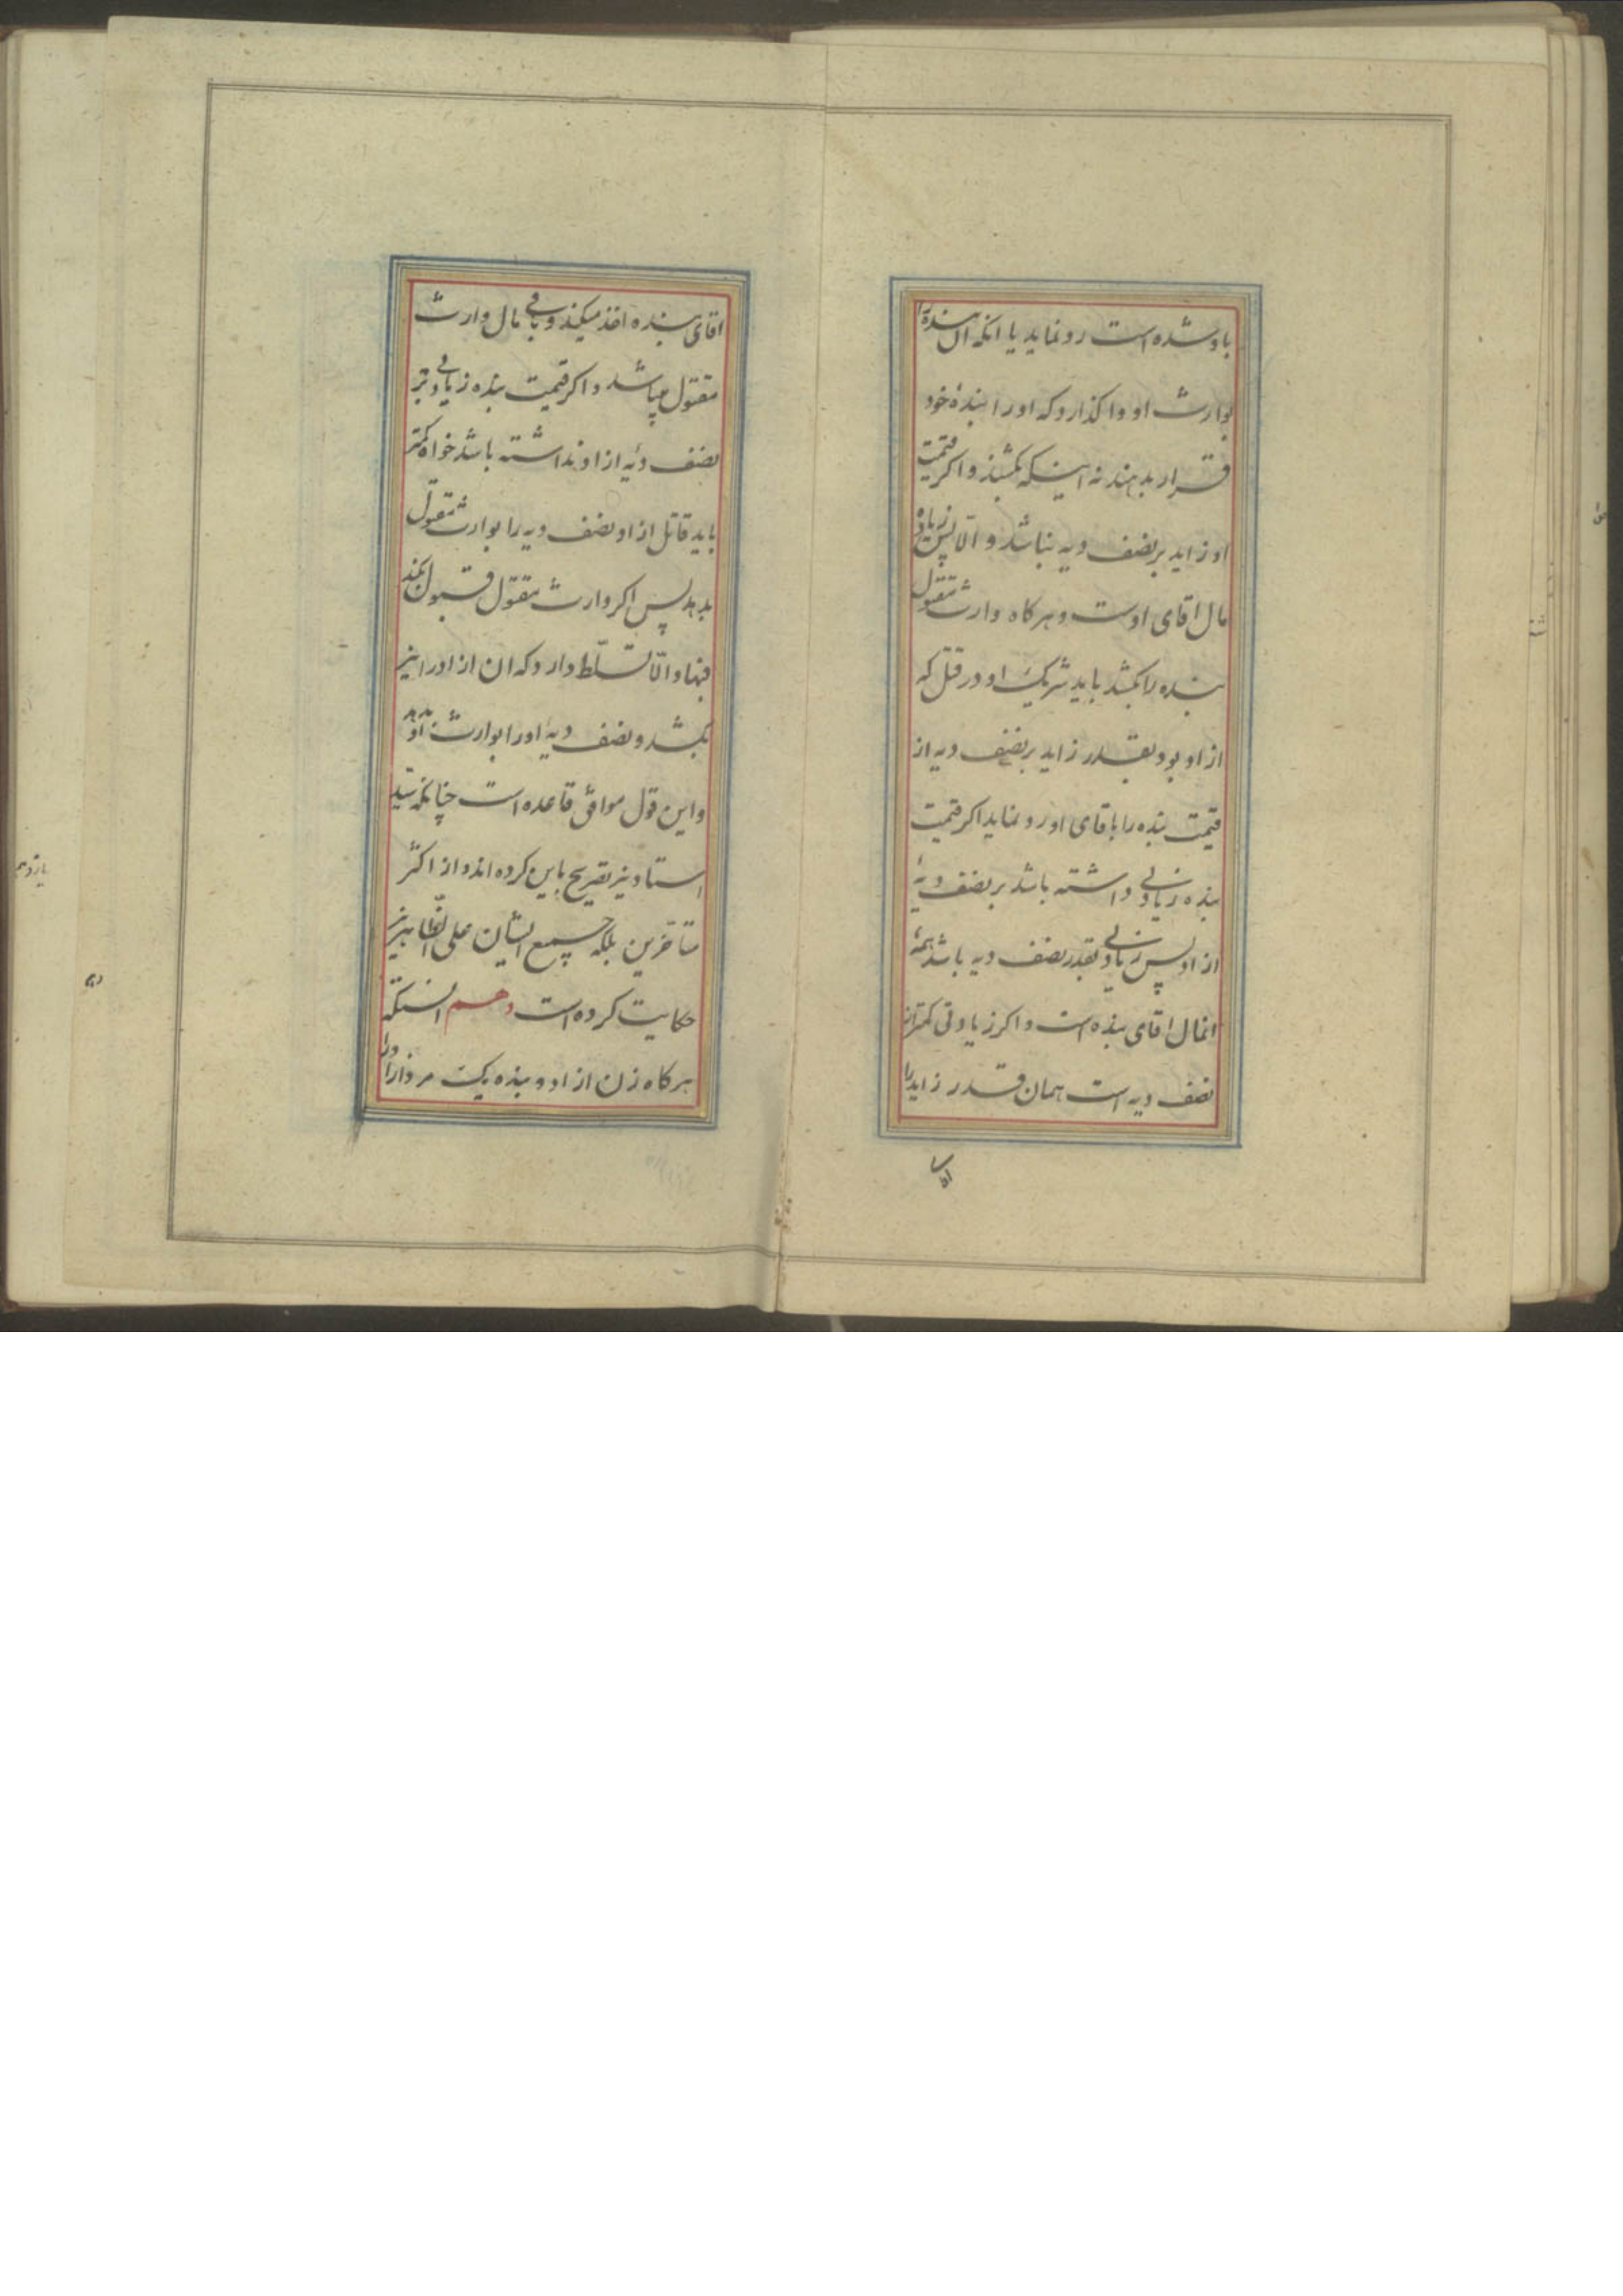 باو شده است رد نماید یا انکه ان بنده را
بوارث او واکذارد که او را بندهٔ خود
قرار بدهند نه اینکه بکشند و اکر قیمت
او زاید بر نصف دیه نباشد و الّا پس زیاده
مال اقای اوست و هرکاه وارث مقتول
بنده را بکشد باید شریک او در قتل که
ازاد بود بقدر زاید بر نصف دیه از
قیمت بنده را باقای او رد نماید اکر قیمت
بنده زیادتی داشته باشد بر نصف دیهٔ
ازاد پس زیادتی بقدر نصف دیه باشد همهٔ
انمال اقای بنده است و اکر زیادتی کمتر از
نصف دیه است همان قدر زاید را
اقای
اقای بنده اخذ میکند و باقی مال وارث
مقتول میباشد و اکر قیمت بنده زیادتی بر
نصف دیه ازاد نداشته باشد خواه کمتر
باید قاتل ازاد نصف دیه را بوارث مقتول
بدهد پس اکر وارث مقتول قبول بکند
فبها و الّا تسلّط دارد که ان ازاد را نیز
بکشد و نصف دیهٔ او را بوارث او بدهد
و این قول موافق قاعده است چنانکه سید
استاد نیز تصریح باین کرده اند و از اکثر
متاخرین بلکه جمیع ایشان علی الظاهر نیز
حکایت کرده است دهم انستکه
هرکاه زن ازاد و بنده یک مرد ازاد را